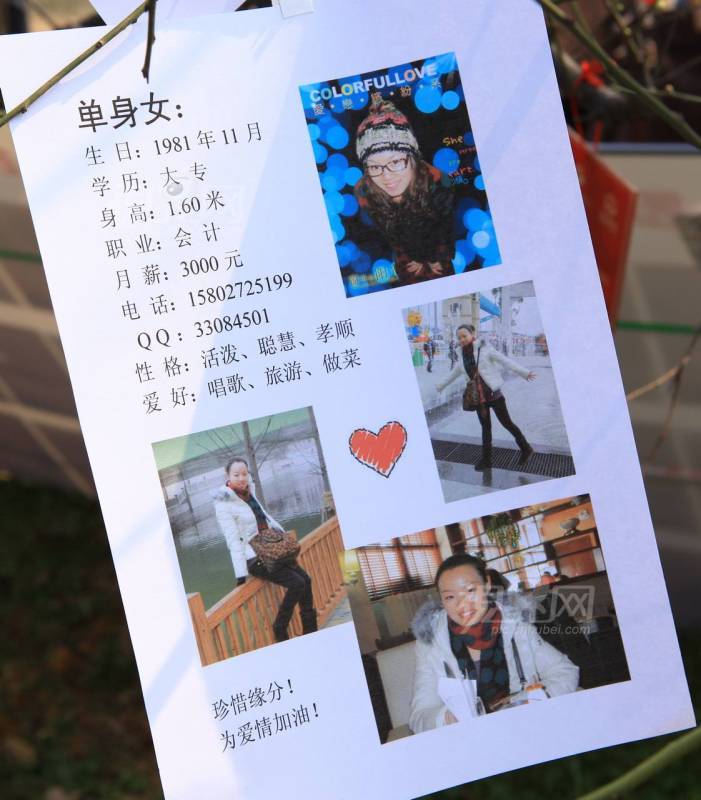 单身女：
生 日：1981 年 11 月
学 历：大 专
身 高：1.60 米
职 业：会 计
月 薪：3000 元
电 话：15802725199
Q Q：33084501
性 格：活泼、聪慧、孝顺
爱 好：唱歌、旅游、做菜
COLORFULLOVE
She
珍惜缘分！
为爱情加油！